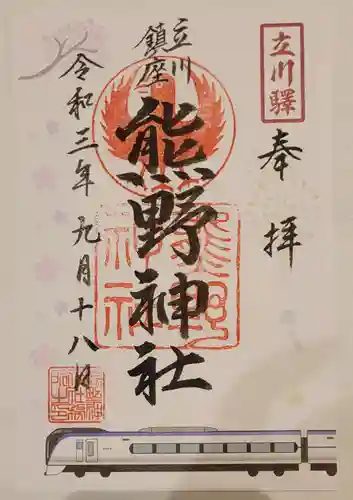 立川驛
奉拝
立川
鎮座
熊野神社
令和三年九月十八日
熊野
神社